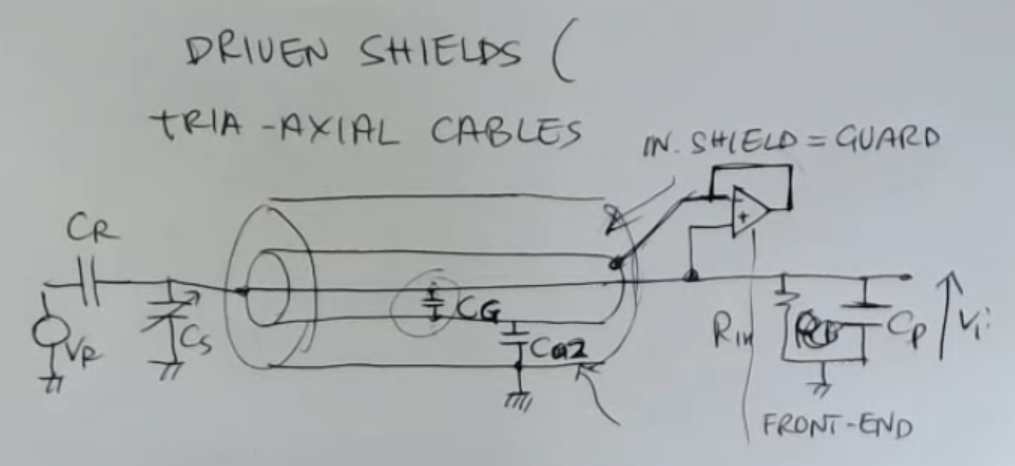 DRIVEN SHIELDS (
TRIA-AXIAL CABLES
IN. SHIELD = GUARD
CR
VR
CS
CG
CG2
Rin
CP
Vi
FRONT-END